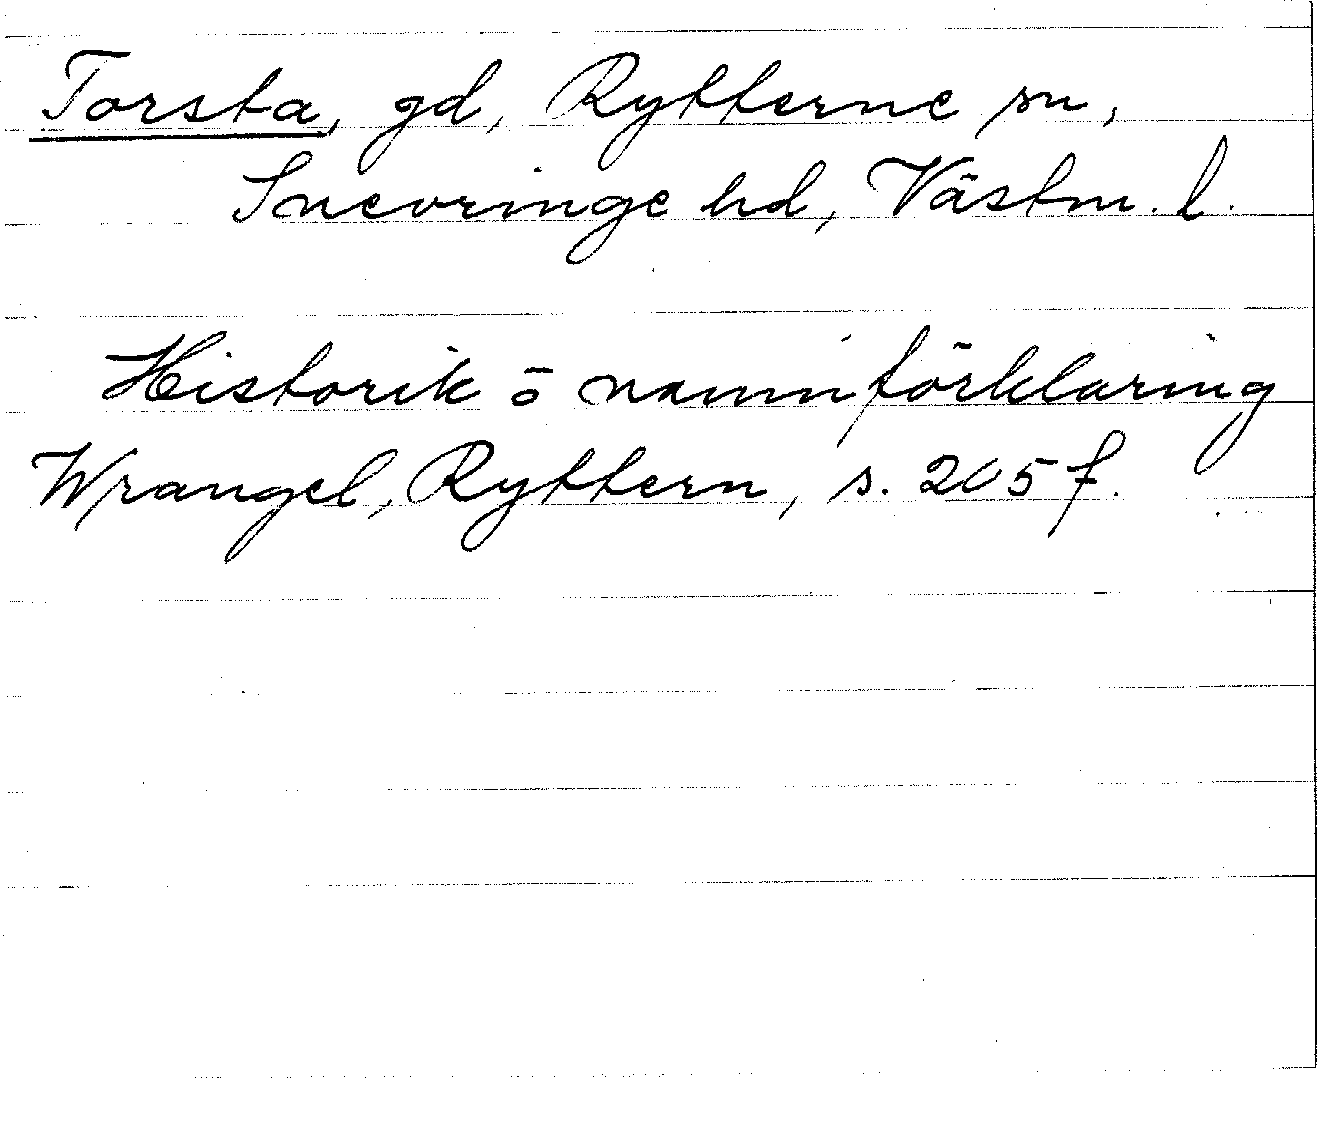 Torsta, gd, Rytterne sn,
Snevringe hd, Västm. l.
Historik o namnförklaring
Wrangel, Ryttern, s. 205 f.